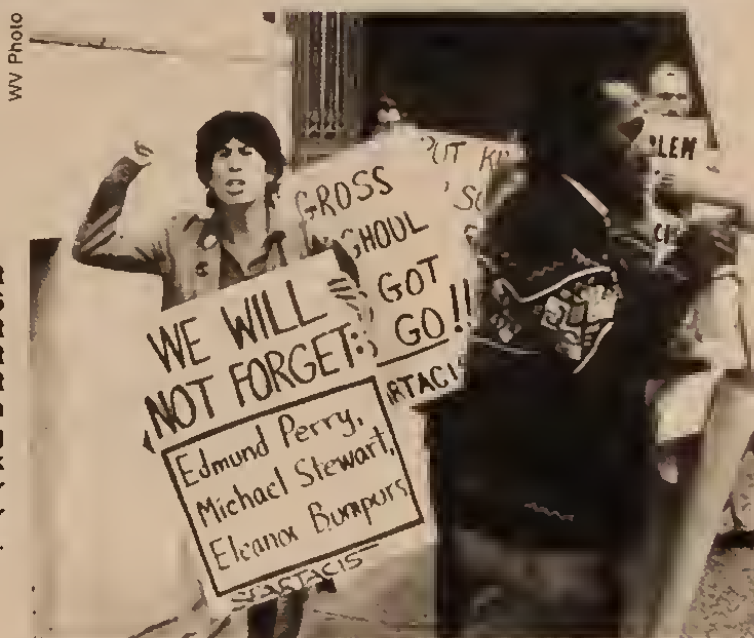 WV Photo
WE WILL
NOT FORGET:
Edmund Perry,
Michael Stewart,
Eleanor Bumpurs
SPARTACIS
GROSS
GHOUL
GOT
GO!!
ARTACIS
PUT
LEM